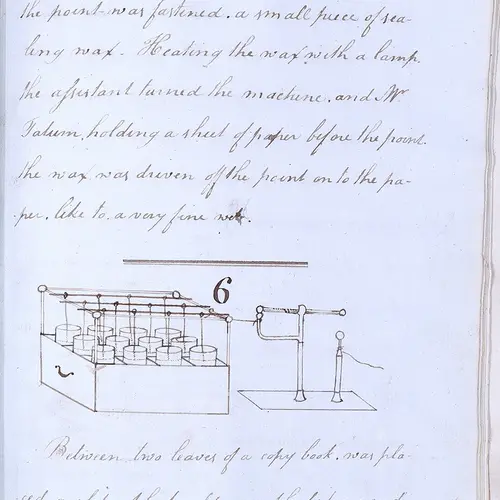 the point was fastened. a small piece of sea-
ling wax. Heating the wax with a lamp.
the assistant turned the machine. and Mr
Tatum, holding a sheet of paper before the point.
the wax was driven off the point on to the pa-
per. like to a very fine
6
Between two leaves of a copy book. was pla-